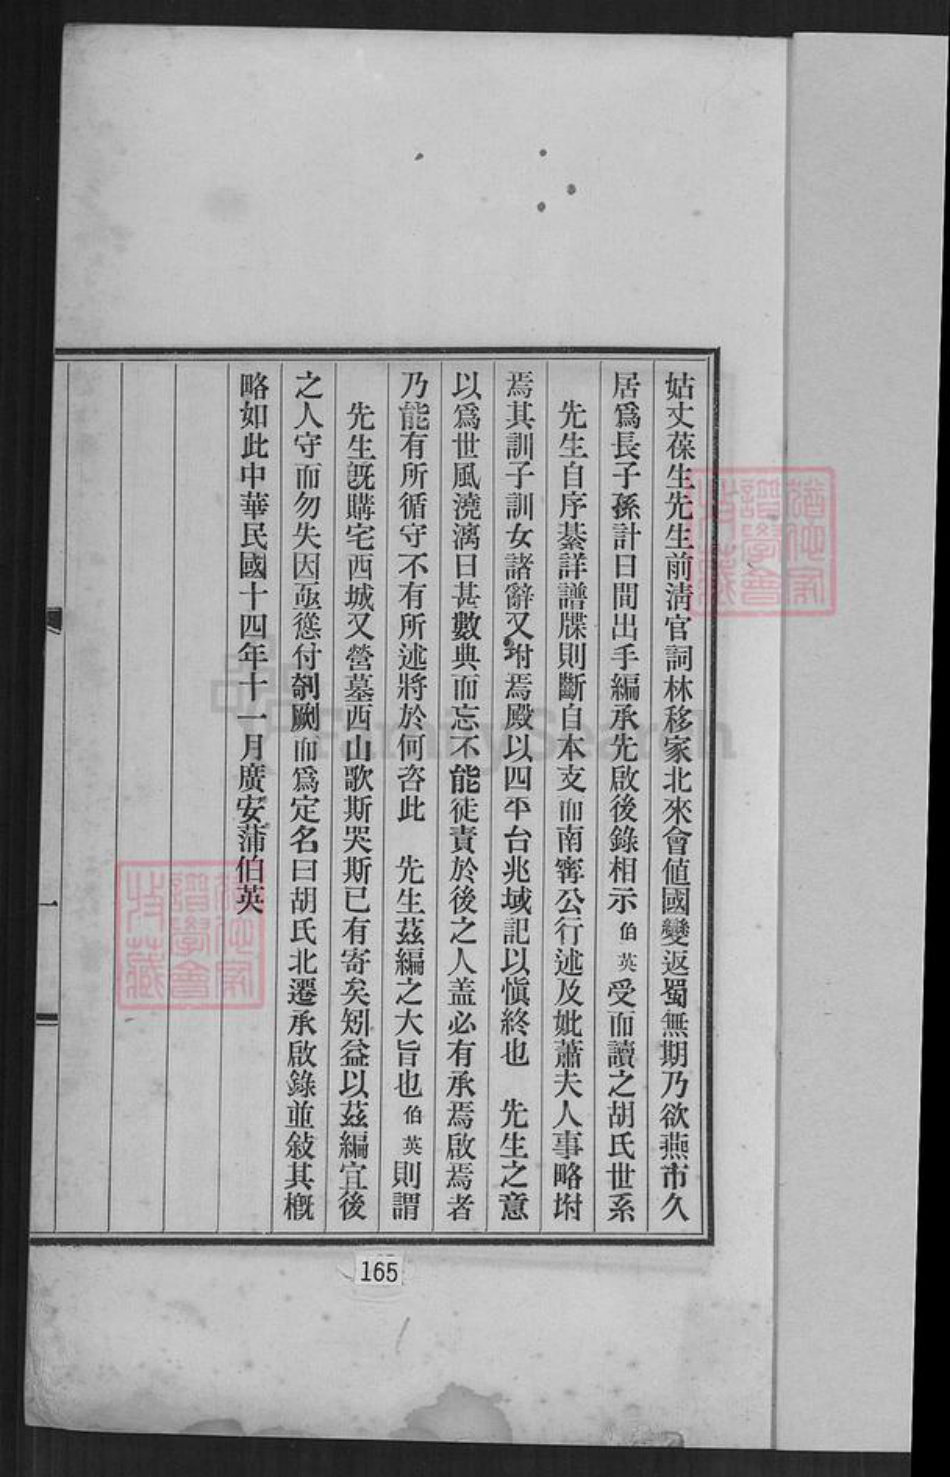 姑丈葆生先生前淸官詞林移家北來會値國變返蜀無期乃欲燕市久
居爲長子孫計日間出手編承先啟後錄相示伯英受而讀之胡氏世系
先生自序綦詳譜牒則斷自本支而南寗公行述及妣蕭夫人事略坿
焉其訓子訓女諸辭又坿焉殿以四平台兆域記以愼終也 先生之意
以爲世風澆漓日甚數典而忘不能徒責於後之人盖必有承焉啟焉者
乃能有所循守不有所述將於何咨此 先生茲編之大旨也伯英則謂
先生旣購宅西城又營墓西山歌斯哭斯已有寄矣矧益以茲編宜後
之人守而勿失因亟慫付剞劂而爲定名曰胡氏北遷承啟錄並敍其概
略如此中華民國十四年十一月廣安蒲伯英
一
165
猶他家
譜學會
收藏
猶他家
譜學會
收藏
FamilySearch